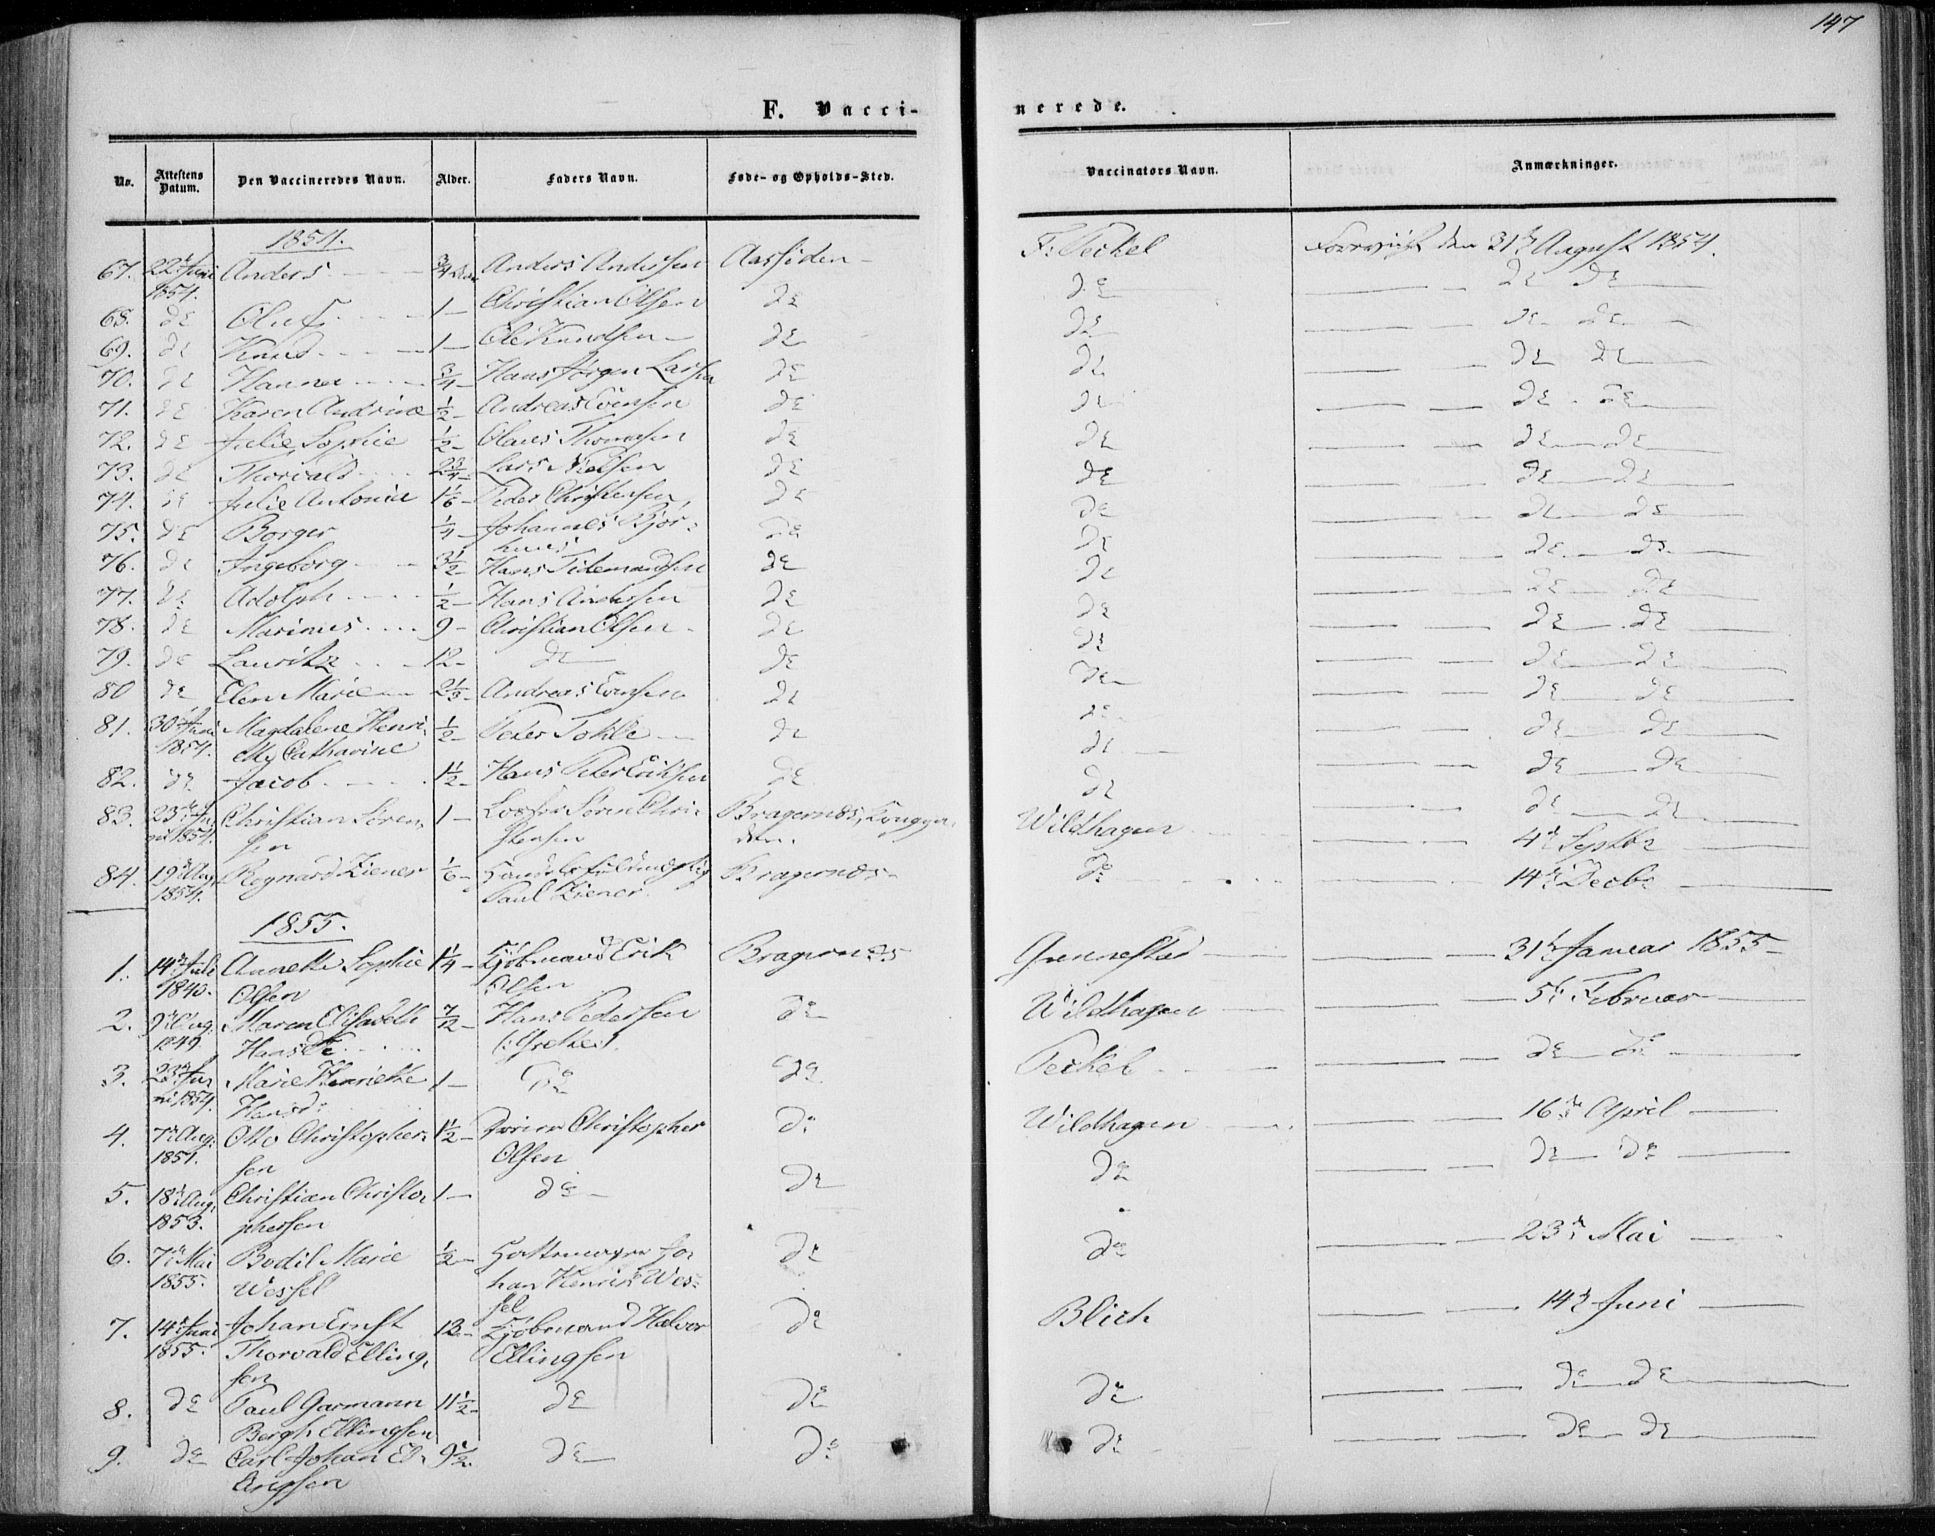 147
F. Vacci-
nerede.
No. Attestens Datum. Den Vaccineredes Navn. Alder. Faders Navn. Føde- og Opholds-Sted. Vaccinators Navn. Anmærkninger.
1854.
67. 22 Juni 1854. Anders 3/4 Anders Andersen Aassiden F: Teckel den 31te August 1854.
68. do Oluf 1 Christian Olsen do do do do
69. do Knud 1 Ole Knudsen do do do do
70. do Hanna 3/4 Hans Jørgen Larsen do do do do
71. do Karen Andrine 1/2 Andreas Evensen do do do do
72. do Julie Sophie 1/2 Olaus Thomesen do do do do
73. do Thorvald 2 3/4 Lars Nielsen do do do do
74. do Julie Antonia 1 1/6 Peder Christensen do do do do
75. do Borger 1/4 Johannes Bjør-
huus do do do do
76. do Ingeborg 3 1/2 Hans Tidemandsen do do do do
77. do Adolph 1/2 Hans Andersen do do do do
78. do Marinus 9 Christian Olsen do do do do
79. do Lauritz 12 do do do do do
80 do Elen Marie 2 1/3 Andreas Evensen do do do do
81. 30 Juni 1854. Magdalene Henri-
ette Catharine 1/2 Peter Tokle do do do do
82. do Jacob 1 1/2 Hans Peter Eriksen do do do do
83. 23 Ju-
ni 1854. Christian Søren-
sen 1 Søren Chri-
stensen Bragernæs, Wildhagen 4de Septbr
84. 19 Aug. 1854. Regnard Ziener 1/6 Paul Ziener Bragernæs do 14de Decbr
1855.
1. 14 Juli 1840. Annette Sophie
Olsen 1 1/4 Kjøbmand Erik
Olsen Bragernæs Gunnestad 31te Januar 1855
2. 9 Aug. 1849. Maren Elisabeth
Hansdtr 7/12 Hans Pedersen do Wildhagen 5te Februar
3. 23 Ju-
ni 1854. Marie Henriette
Hansdr 1 do do Teckel do do
4. 7 Aug. 1851. Otto Christopher-
sen 1 1/2 Christopher
Olsen do Wildhagen 16de April
5. 18 Aug. 1853. Christian Christo-
phersen 1 do do do do do
6. 7 Mai 1855. Bodil Marie
Wessel 1/2 Hattemager Jo-
han Henrik Wes-
sel do do 23de Mai
7. 14 Juni 1855. Johan Ernst
Thorvald Elling-
sen 13 Kjøbmand Halvor
Ellingsen do Blich 14de Juni
8. do Paul Garmann
Bergh Ellingsen 11 1/2 do do do do do
9. do Carl Johan El-
lingsen 9 1/2 do do do do do